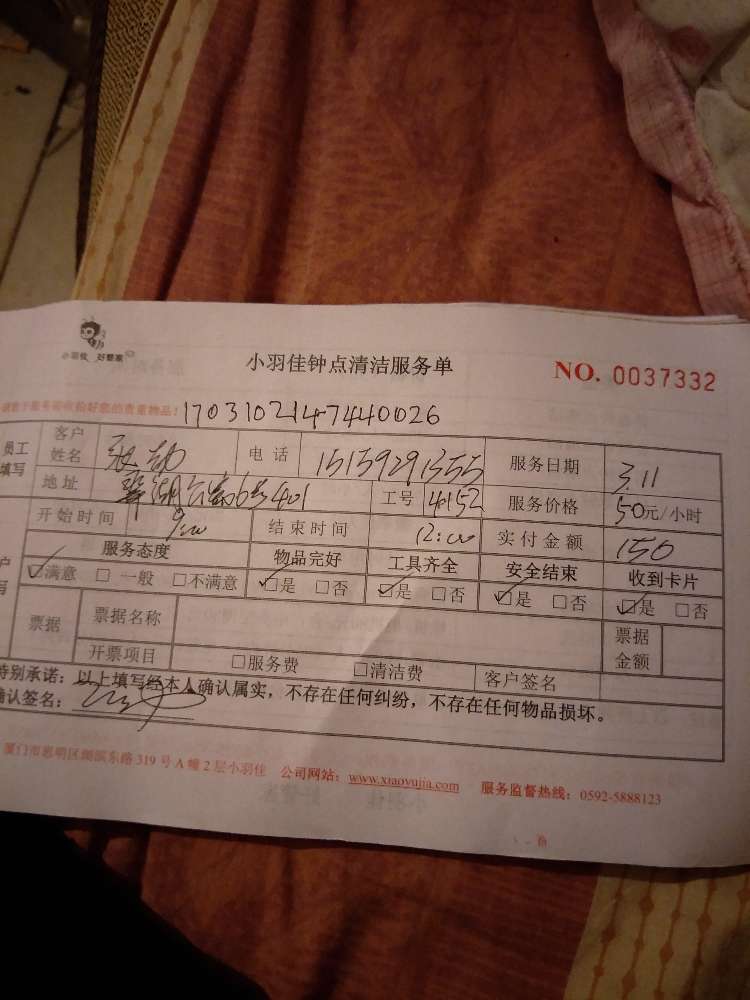 小羽佳 好管家
小羽佳钟点清洁服务单
NO. 0037332
好您的贵重物品！1703102147440026
员工填写 客户姓名 电话 15159291355 服务日期 3.11
地址 翠湖公寓6号401 工号 4152 服务价格 50元/小时
开始时间 9:00 结束时间 12:00 实付金额 150
服务态度 物品完好 工具齐全 安全结束 收到卡片
☑满意 □一般 □不满意 ☑是 □否 ☑是 □否 ☑是 □否 ☑是 □否
票据 票据名称 票据金额
开票项目 □服务费 □清洁费 客户签名
特别承诺：以上填写经本人确认属实，不存在任何纠纷，不存在任何物品损坏。
确认签名：
厦门市思明区湖滨东路 319 号 A 幢 2 层小羽佳 公司网站：www.xiaoyujia.com 服务监督热线：0592-5888123